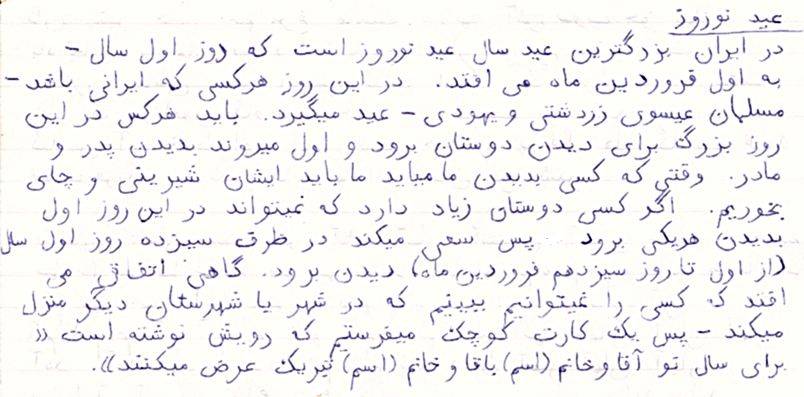 عید نوروز
در ایران بزرگترین عید سال عید نوروز است که روز اول سال -
به اول فروردین ماه می افتد. در این روز هرکسی که ایرانی باشد -
مسلمان عیسوی زردشتی و یهودی - عید میگیرد. باید هرکس در این
روز بزرگ برای دیدن دوستان برود و اول میروند بدیدن پدر و
مادر. وقتی که کسی بدیدن ما میاید ما باید ایشان شیرینی و چای
بخوریم. اگر کسی دوستان زیاد دارد که نمیتواند در این روز اول
بدیدن هریکی برود پس سعی میکند در ظرف سیزده روز اول سال
(از اول تا روز سیزدهم فروردین ماه) دیدن برود. گاهی اتفاق می
افتد که کسی را نمیتوانیم ببینم که در شهر یا شهرستان دیگر منزل
میکند - پس یک کارت کوچک میفرستیم که رویش نوشته است «
برای سال نو آقا و خانم (اسم) باقا و خانم (اسم) تبریک عرض میکنند».